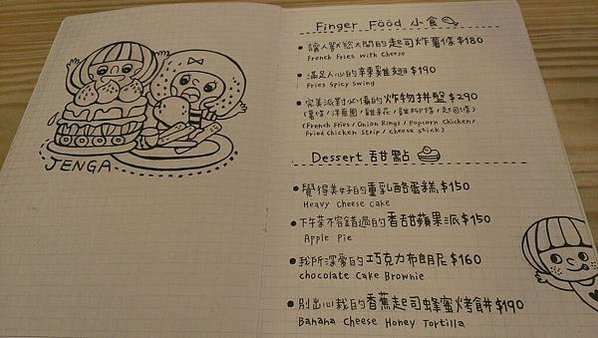 JENGA
Finger Food 小食
讓人獸慾大開的起司炸薯條$180
French Fries with Cheese
滿足人心的辛東雞翅$190
Fries Spicy Swing
完美派對必備的炸物拼盤$290
(薯條/洋蔥圈/雞米花/雞柳條/起司條)
(French Fries/Onion Rings/Popcorn Chicken/
Fried Chicken Strip/cheese stick)
Dessert 甜點
覺得美好的重乳酪蛋糕$150
Heavy Cheese Cake
下午茶不容錯過的香甜蘋果派$150
Apple Pie
我所深愛的巧克力布朗尼$160
chocolate Cake Brownie
別出心栽的香蕉起司蜂蜜烤餅$190
Banana Cheese Honey Tortilla